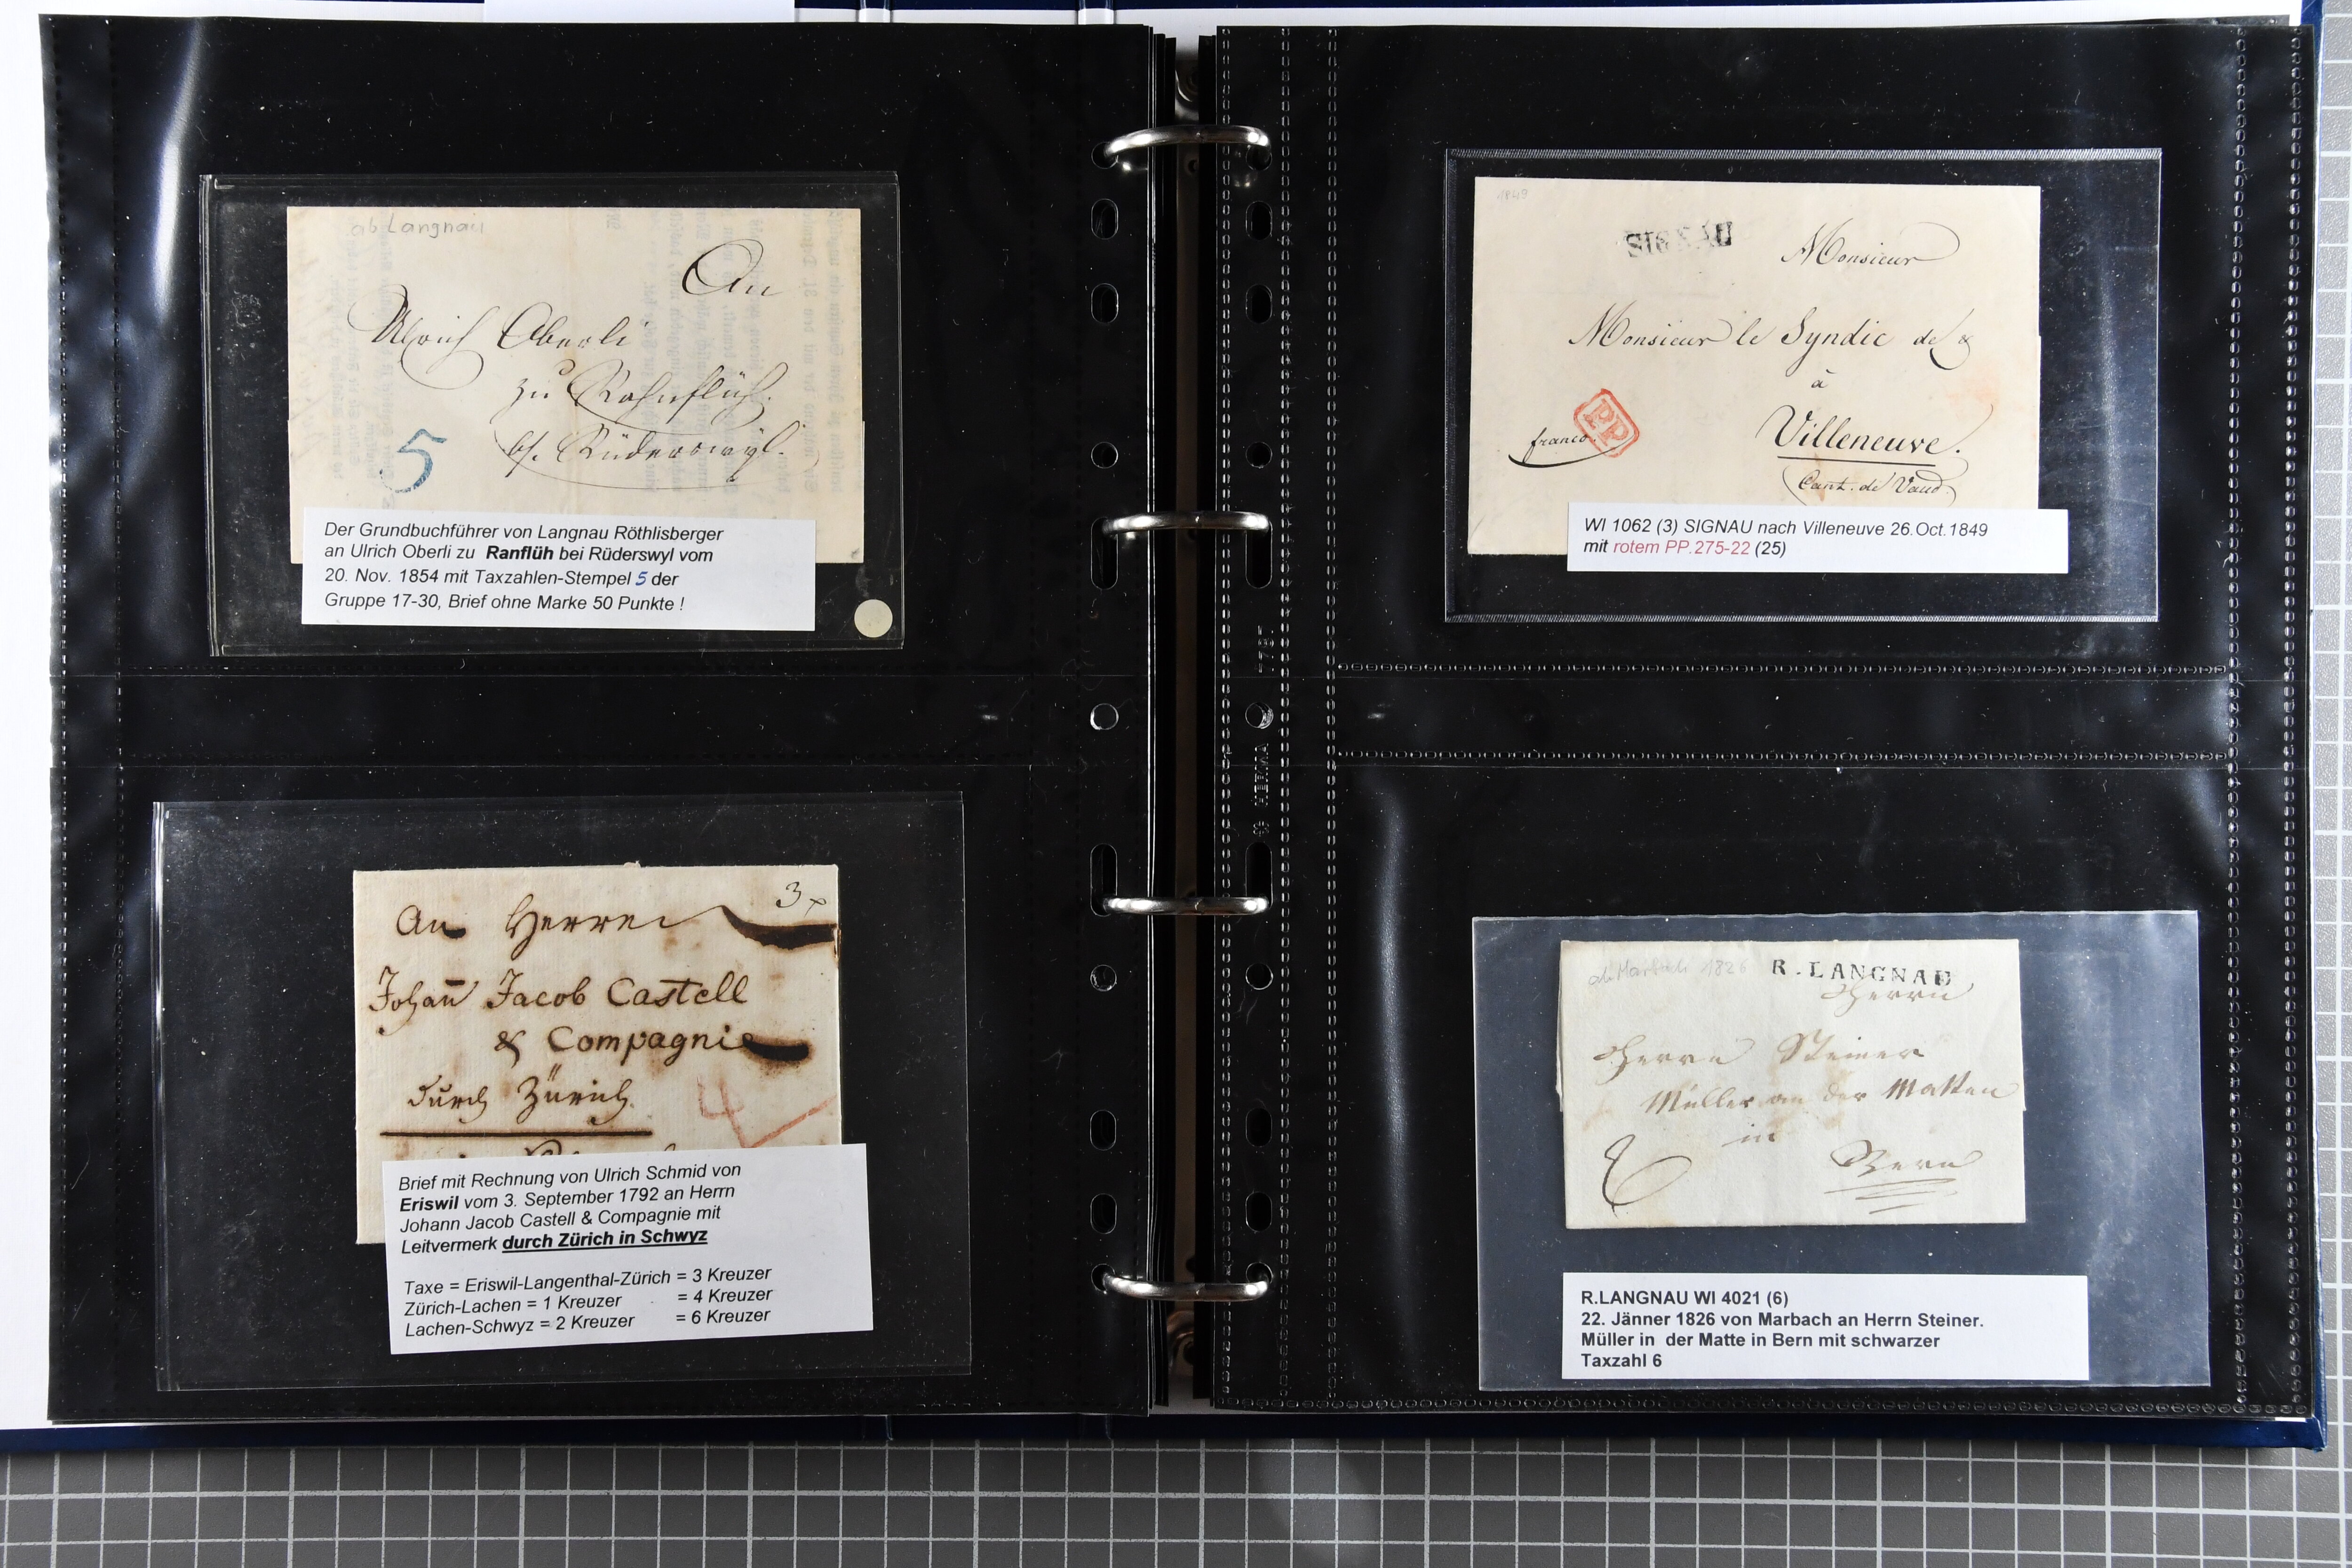 ab Langnau
An
Ulrich Oberli
zu Rahnflüh
bŷ. Rüderswÿl.
5
Der Grundbuchführer von Langnau Röthlisberger
an Ulrich Oberli zu Ranflüh bei Rüderswyl vom
20. Nov. 1854 mit Taxzahlen-Stempel 5 der
Gruppe 17-30, Brief ohne Marke 50 Punkte !
3x
An Herren
Johan̄ Jacob Castell
& Compagnie
durch Zürich
4
Brief mit Rechnung von Ulrich Schmid von
Eriswil vom 3. September 1792 an Herrn
Johann Jacob Castell & Compagnie mit
Leitvermerk durch Zürich in Schwyz
Taxe = Eriswil-Langenthal-Zürich = 3 Kreuzer
Zürich-Lachen = 1 Kreuzer = 4 Kreuzer
Lachen-Schwyz = 2 Kreuzer = 6 Kreuzer
1849
SIGNAU
Monsieur
Monsieur le Syndic de &
à
Villeneuve.
Cant. de Vaud.
franco
PP
WI 1062 (3) SIGNAU nach Villeneuve 26.Oct.1849
mit rotem PP.275-22 (25)
HERMA 7787
ab Marbach 1826
R. LANGNAU
Herrn
Herrn Steiner
Müller an der Matten
in
Bern
6
R.LANGNAU WI 4021 (6)
22. Jänner 1826 von Marbach an Herrn Steiner.
Müller in der Matte in Bern mit schwarzer
Taxzahl 6